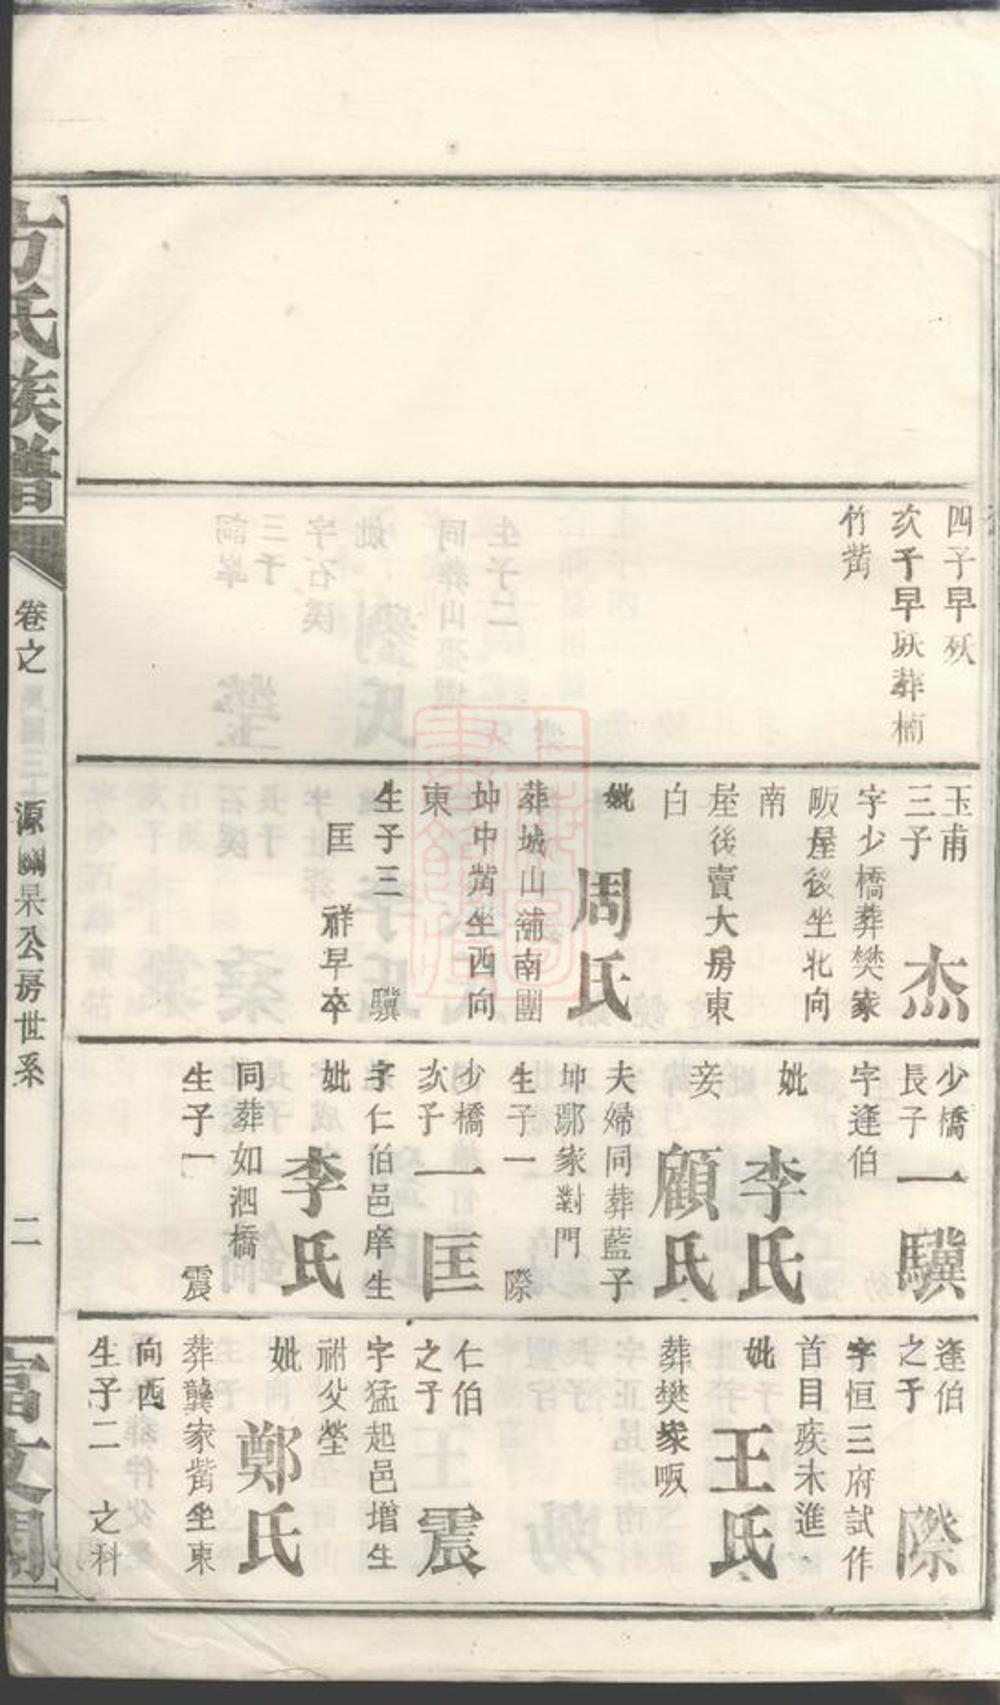 四子早殀
次子早殀葬楠
竹嘴
玉甫
三子
杰
字少橋葬樊家
畈屋後坐北向
南
屋後賣大房東
白
妣
周氏
葬城山浦南團
坤中嘴坐西向
東
生子三 驥
匡 祥早卒
少橋
長子
一驥
字逢伯
妣
李氏
妾
顧氏
夫婦同葬藍子
坤鄢家對門
生子一 際
少橋
次子
一匡
字仁伯邑庠生
妣
李氏
同葬如泗橋
生子一 震
逢伯
之子
際
字恒三府試作
首目疾未進
妣
王氏
葬樊家畈
仁伯
之子
震
字猛起邑增生
祔父塋
妣
鄭氏
葬龔家嘴坐東
向西
生子二 之科
方氏族譜
卷之
源澗杲公房世系
二
富文閣